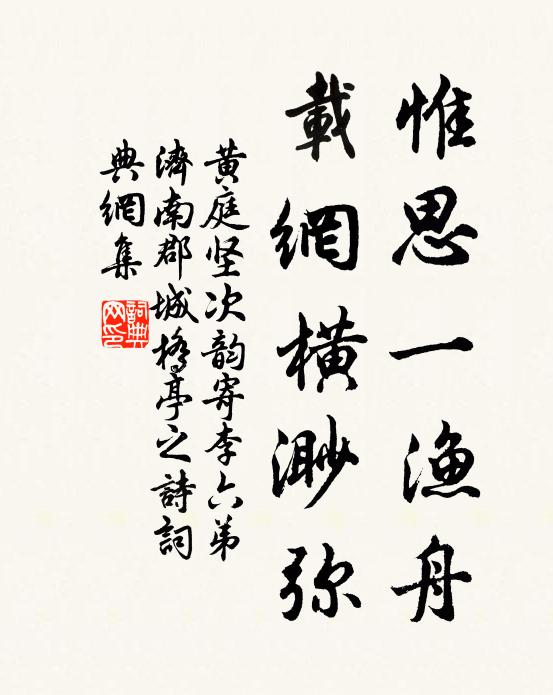 惟思一渔舟
載網橫渺弥
黄庭坚次韵寄李六弟
濟南郡城橋亭之詩詞
典網集
詞典
网印